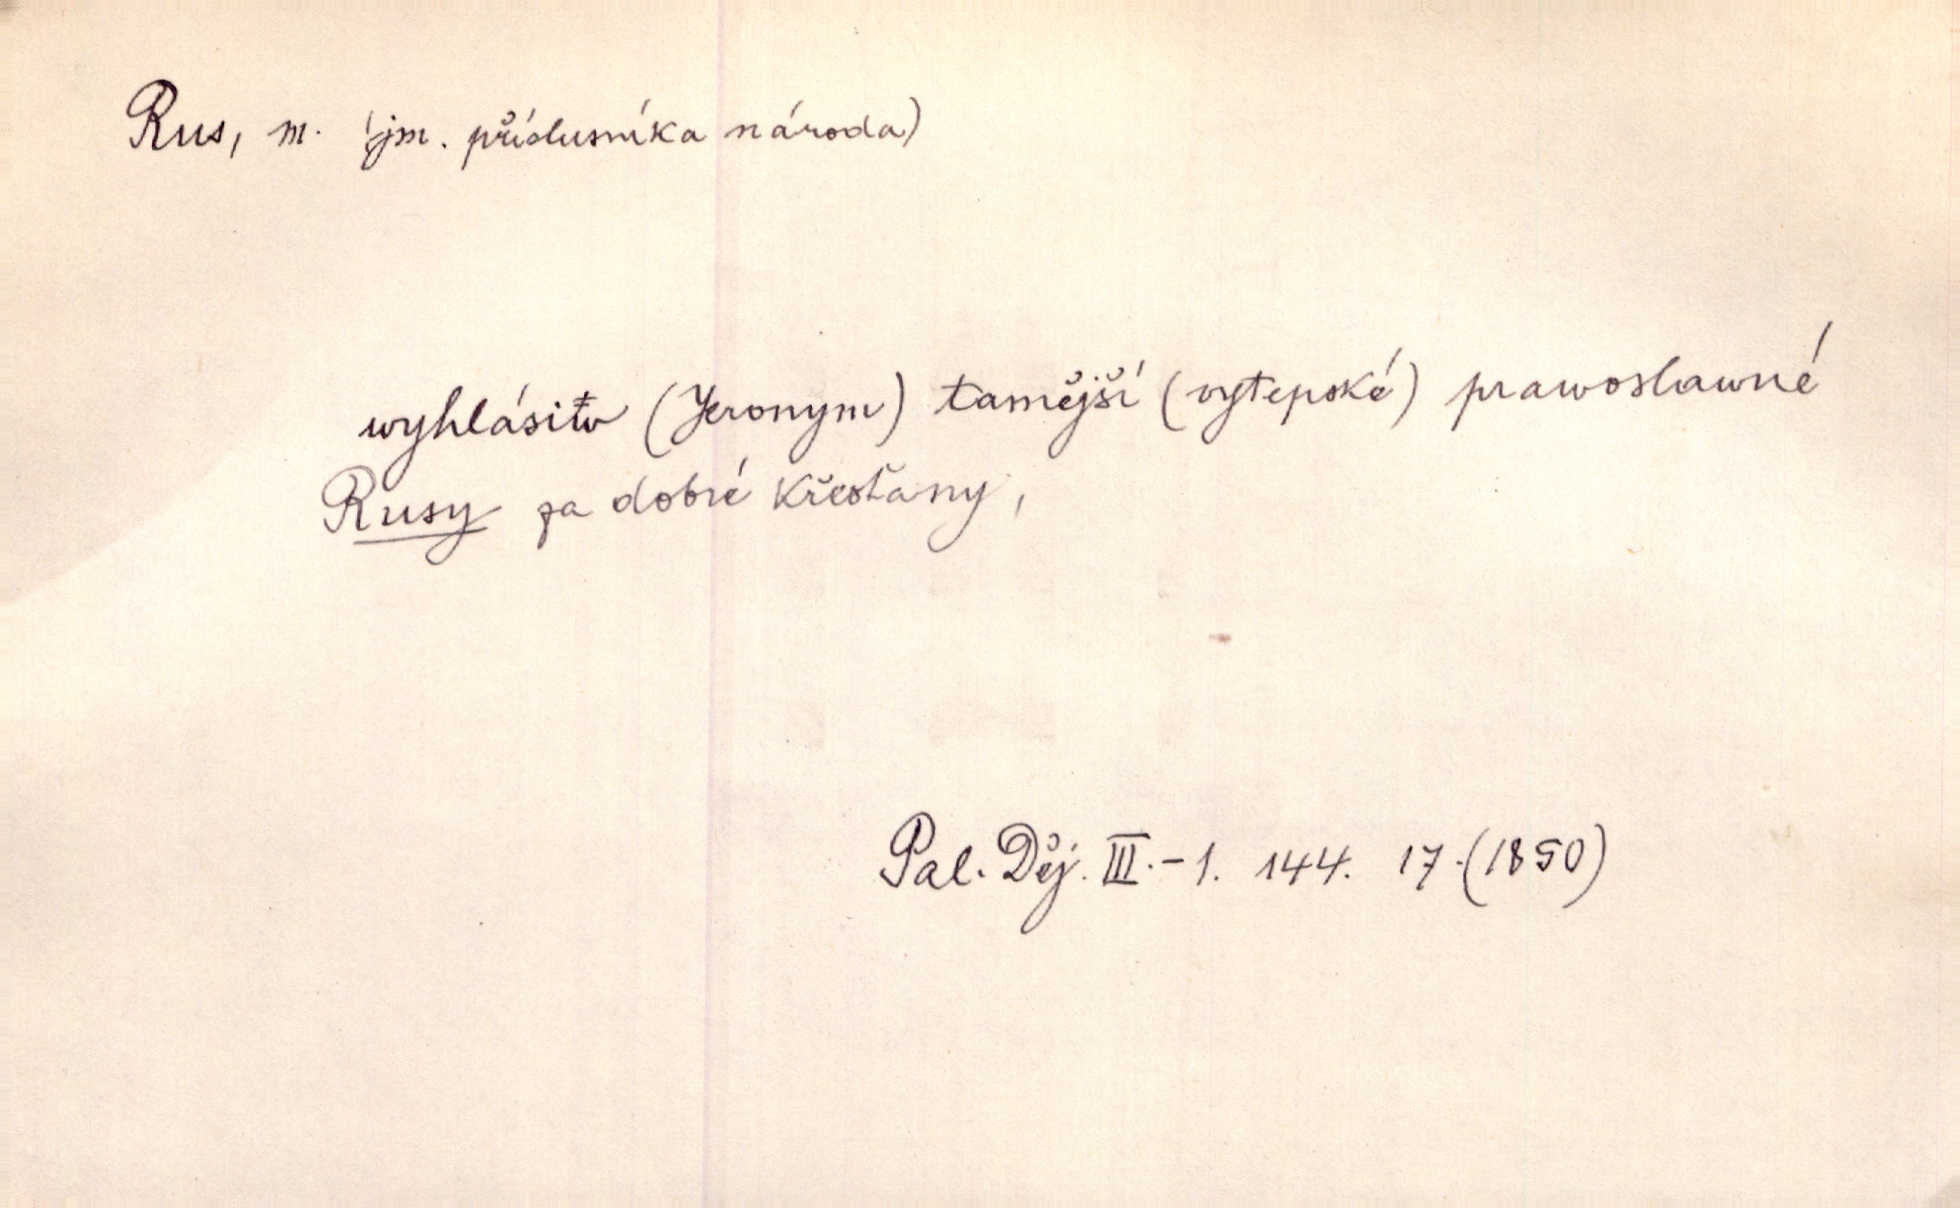 Rus, m. (jm. příslusníka národa)
wyhlásiw (Jeronym) tamější (vytepské) prawoslawné
Rusy za dobré křesťany,
Pal. Děj. III.-1. 144. 17. (1850)